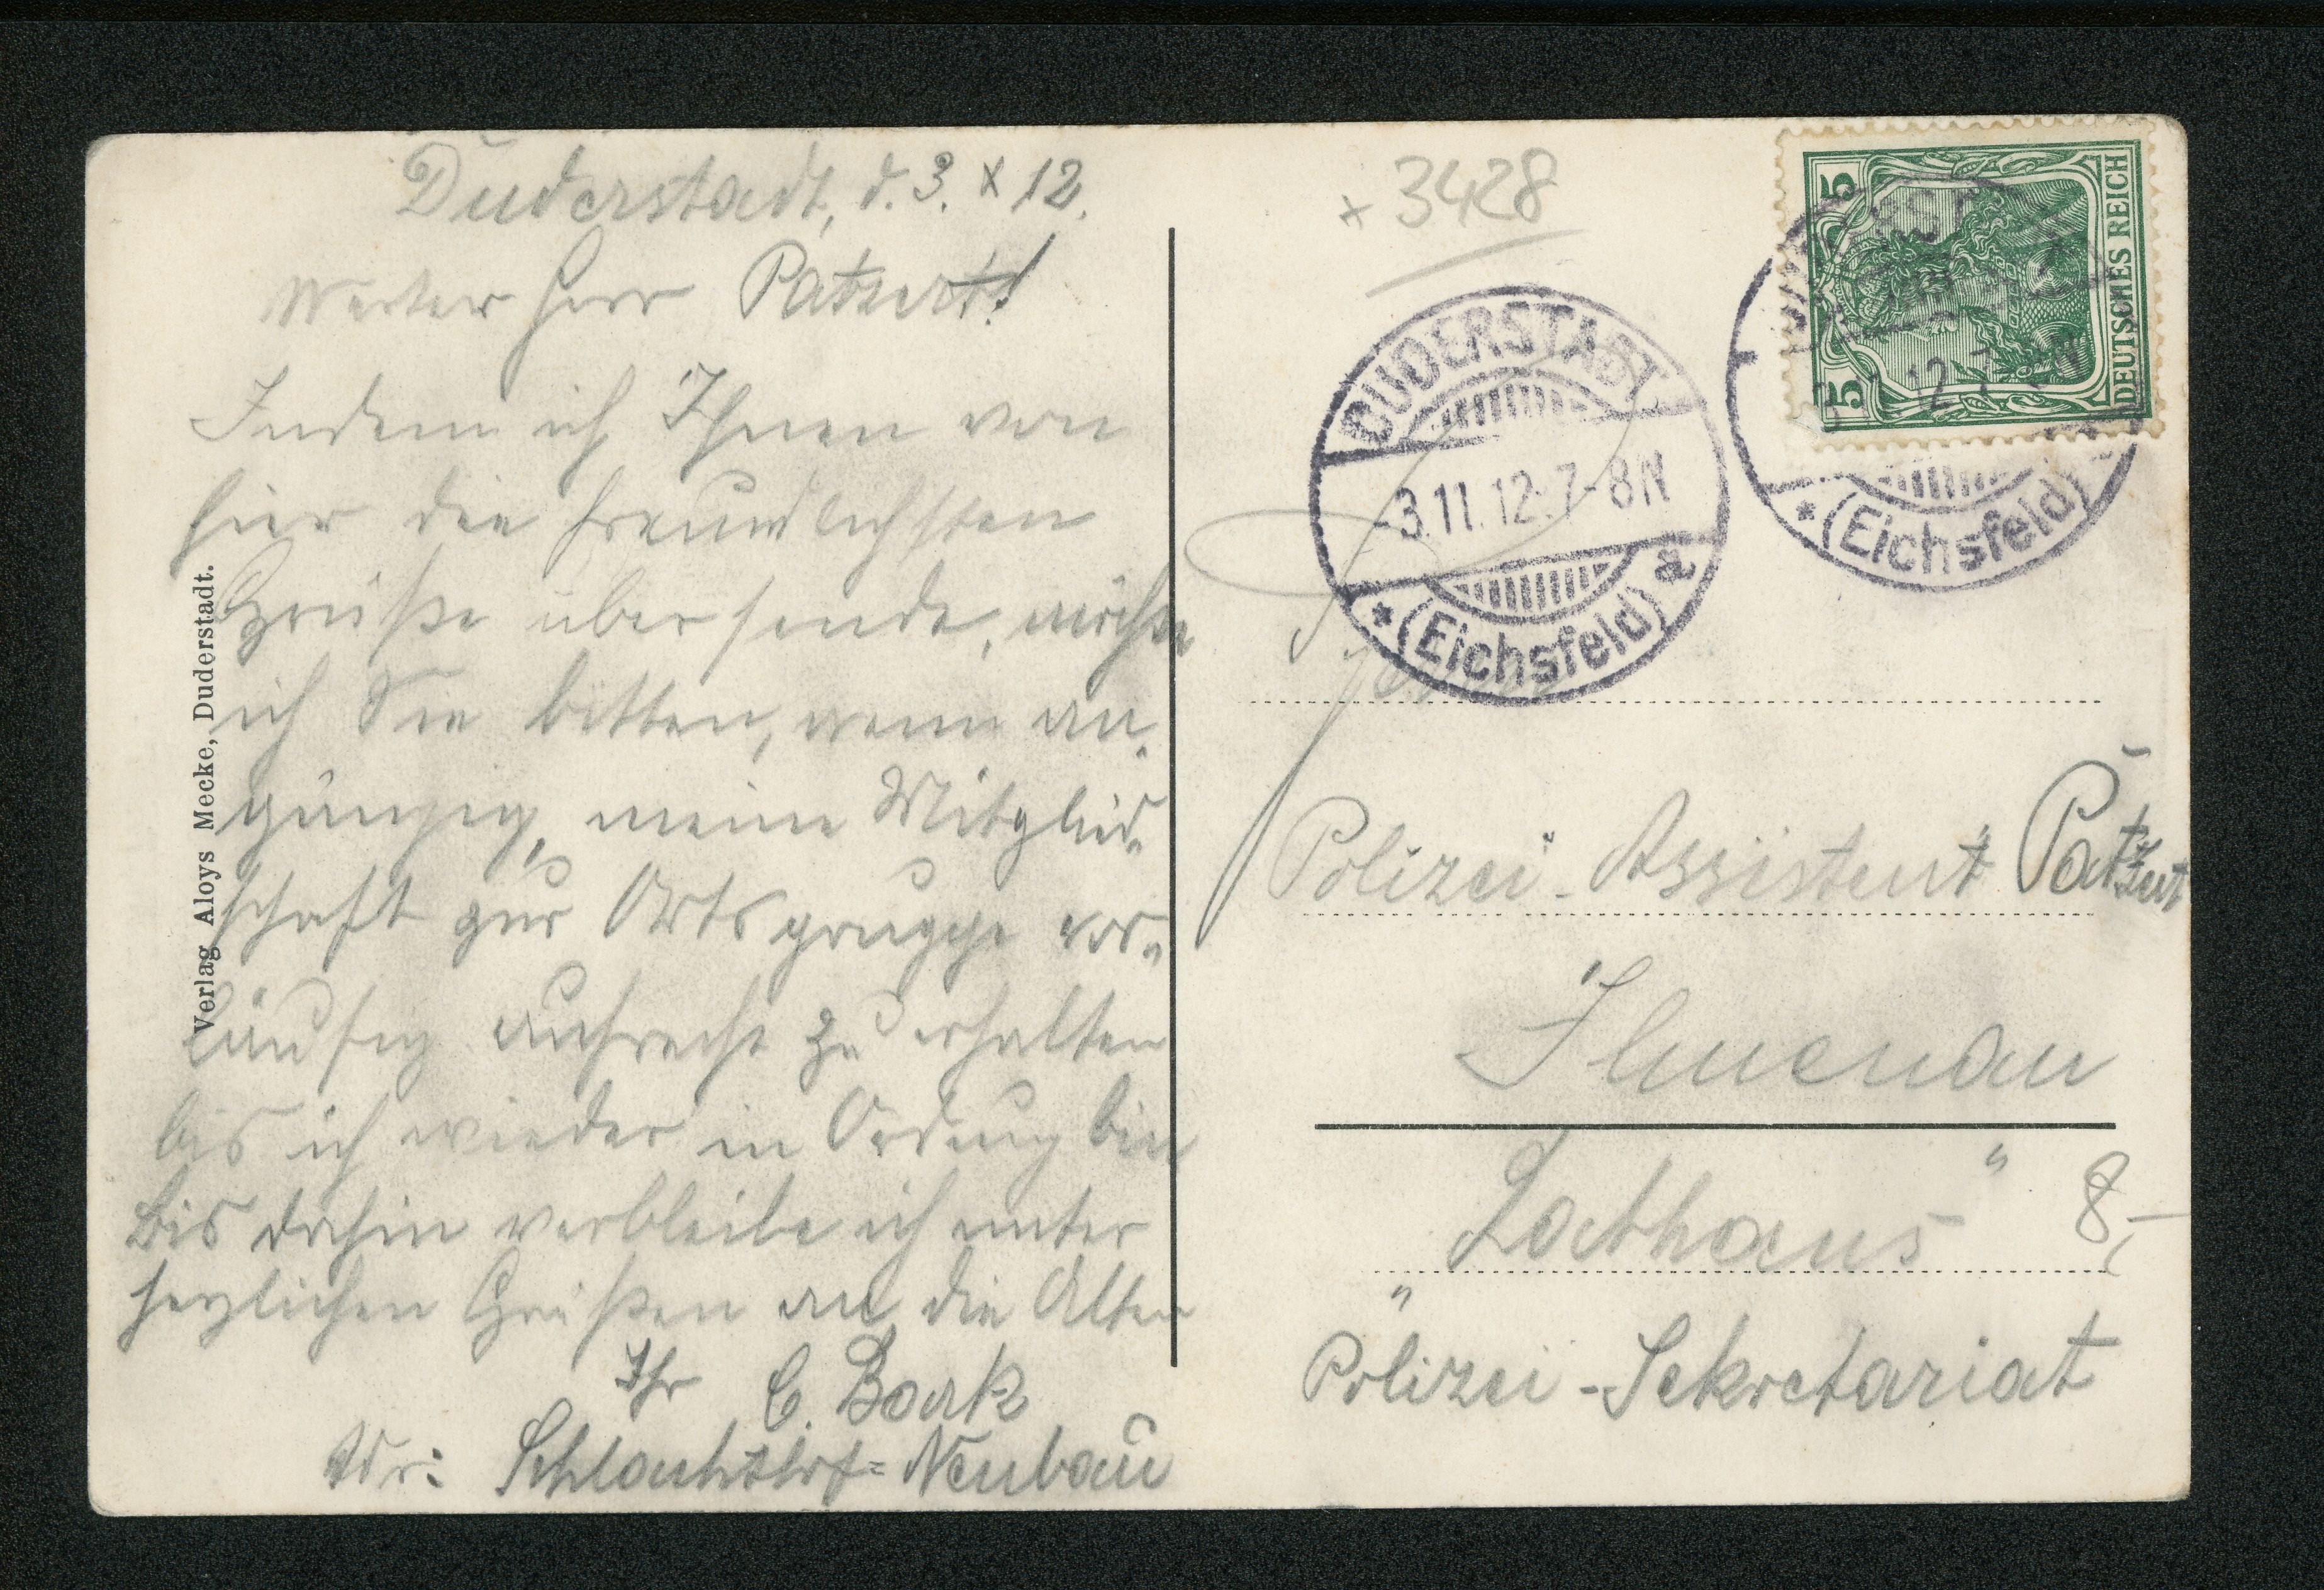 Duderstadt, d. 3. X 12.
Werter Herr Patzert!
Indem ich Ihnen von
hier die freundlichsten
Grüße übersende, möchte
ich Sie bitten, wenn an-
gängig, meine Mitglied-
schaft zur Ortsgruppe vor-
läufig aufrecht zu erhalten
bis ich wieder in Ordnug bin
Bis dahin verbleibe ich unter
herzlichen Grüßen an die Alten
Ihr C. Bark
Adr: Schlachthof=Neubau
Verlag Aloys Mecke, Duderstadt.
x 3428
DEUTSCHES REICH
5 5
DUDERSTADT
-3.11.12.7-8N
* (Eichsfeld) a
* (Eichsfeld)
Polizei-Assistent Patzert
Ilmenau
"Rathaus"
8,-
Polizei-Sekretariat